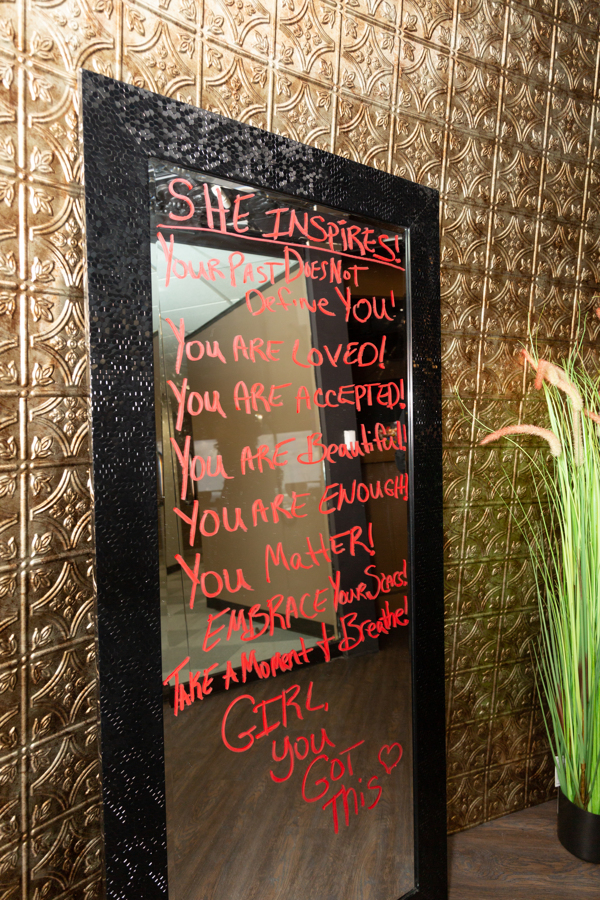 SHE INSPIRES!
YOUR PAST DOES NOT
Define YOU!
YOU ARE LOVED!
YOU ARE ACCEPTED!
YOU ARE Beautiful!
YOU ARE ENOUGH!
YOU MATTER!
EMBRACE YOUR SCARS!
TAKE A MOMENT & Breathe!
GIRL
YOU
GOT
THIS